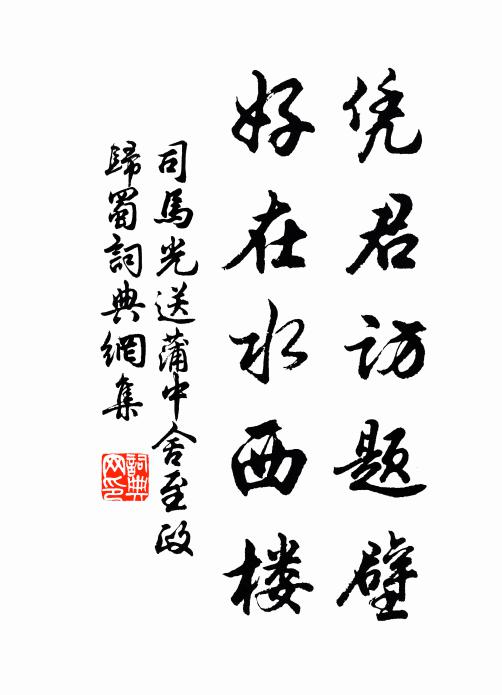 凭君访题壁
好在水西楼
司馬光送蒲中舍至政
歸蜀詞典網集
詞典网印